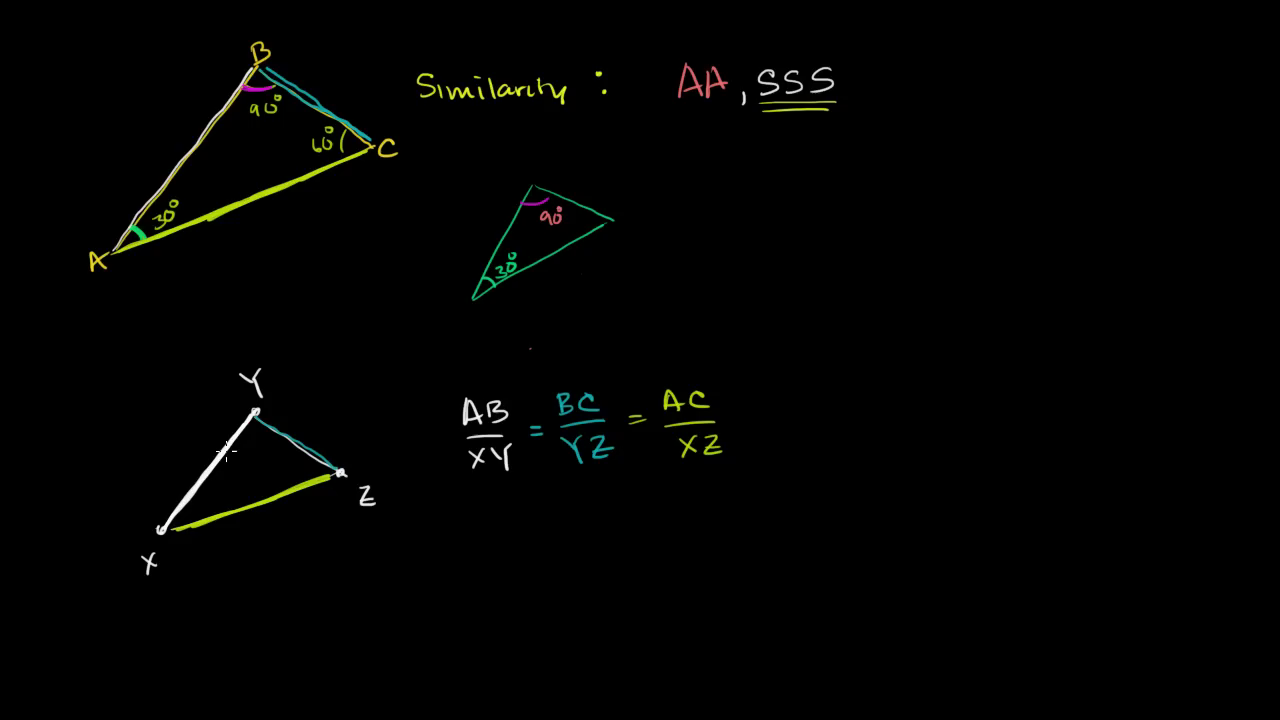 B
Similarity : AA, SSS
90°
60°
C
30°
A
90°
30°
Y
AB/XY = BC/YZ = AC/XZ
Z
X